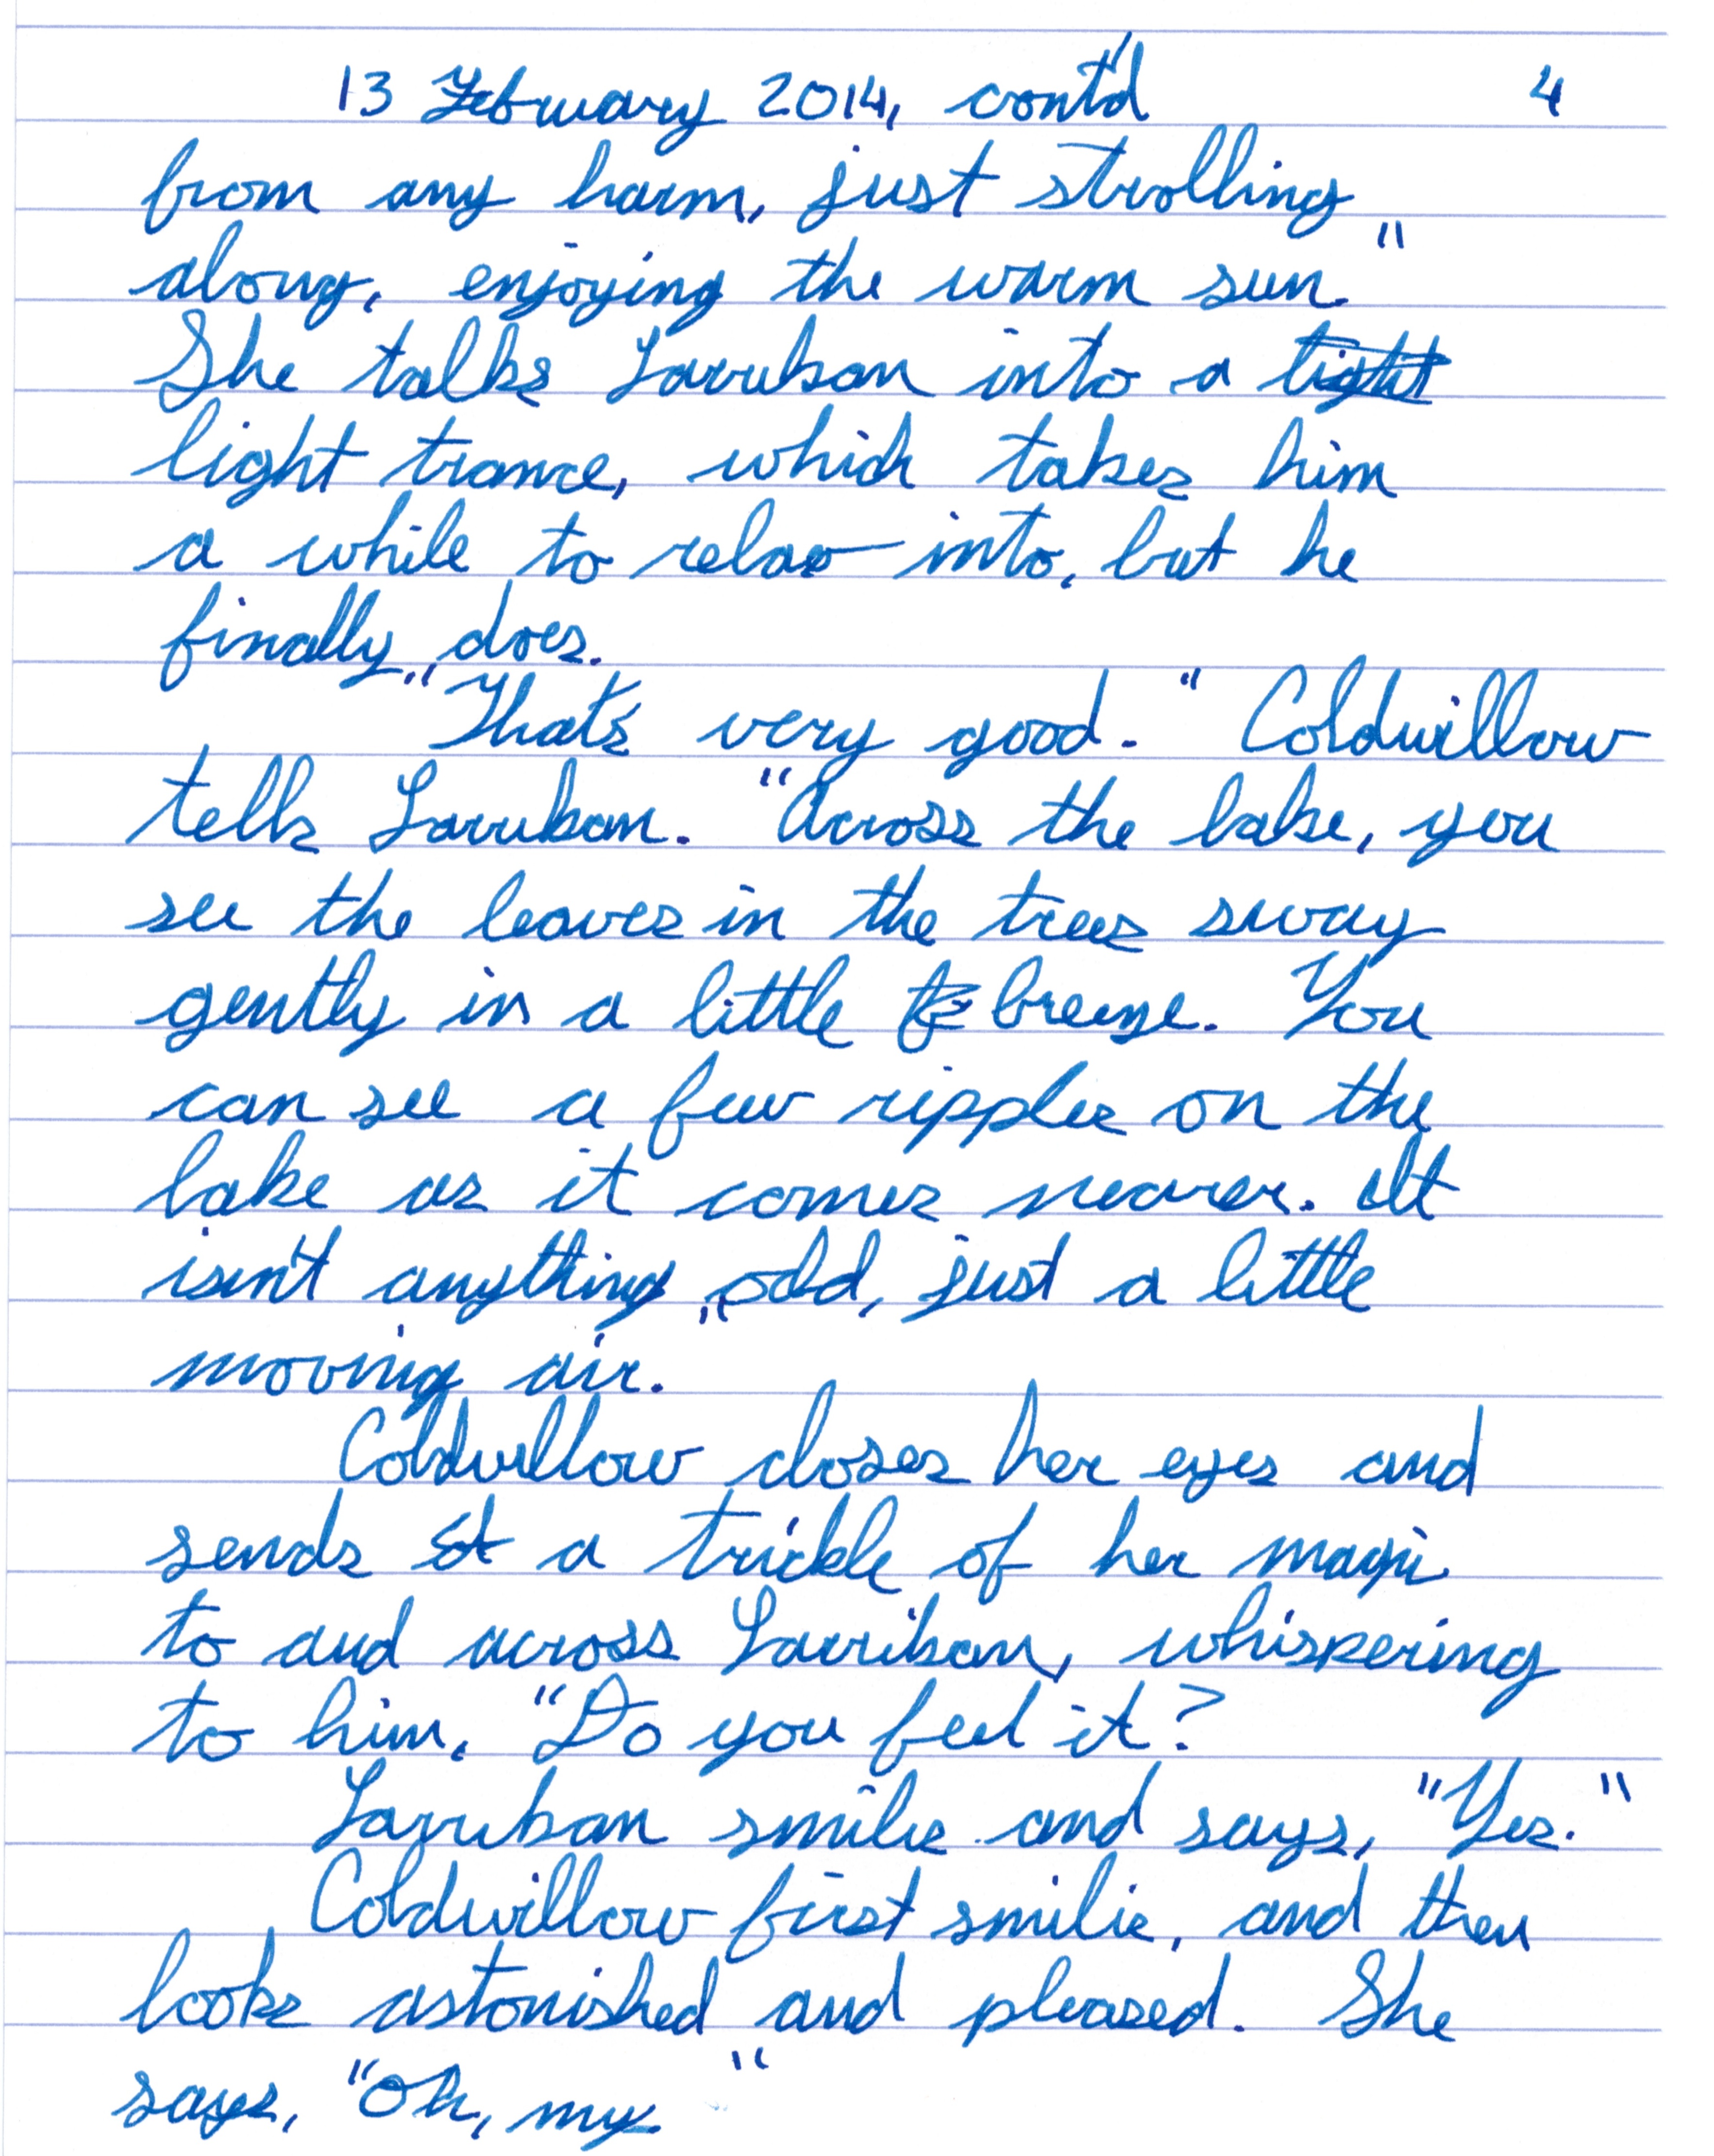 13 February 2014, cont'd 4
from any harm, just strolling
along, enjoying the warm sun."
She talks Larriban into a tight
light trance, which takes him
a while to relax into, but he
finally does.
"That's very good." Coldwillow
tells Larriban. "Across the lake, you
see the leaves in the trees sway
gently in a little breeze. You
can see a few ripples on the
lake as it comes nearer. It
isn't anything odd, just a little
moving air."
Coldwillow closes her eyes and
sends st a trickle of her magic
to and across Larriban, whispering
to him, "Do you feel it?
Larriban smiles and says, "Yes."
Coldwillow first smiles, and then
looks astonished and pleased. She
says, "Oh, my"